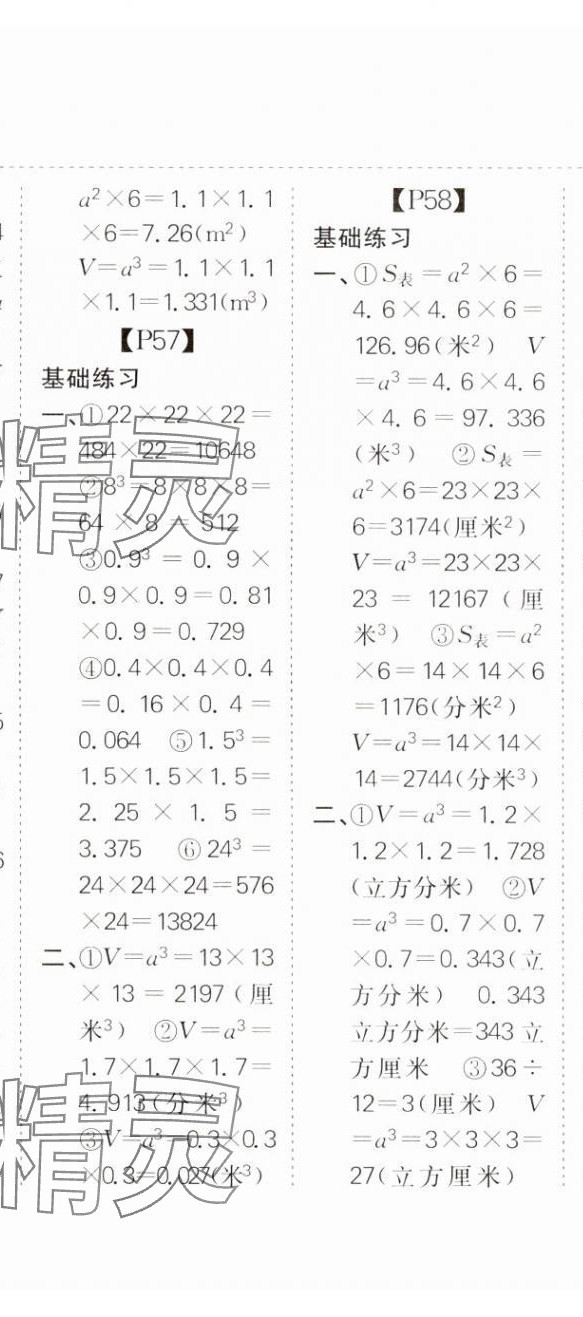 a²×6=1.1×1.1
×6=7.26(m²)
V=a³=1.1×1.1
×1.1=1.331(m³)
【P57】
基础练习
一、①22×22×22=
484×22=10648
②8³=8×8×8=
64×8=512
③0.9³=0.9×
0.9×0.9=0.81
×0.9=0.729
④0.4×0.4×0.4
=0.16×0.4=
0.064 ⑤1.5³=
1.5×1.5×1.5=
2.25×1.5=
3.375 ⑥24³=
24×24×24=576
×24=13824
二、①V=a³=13×13
×13=2197(厘
米³) ②V=a³=
1.7×1.7×1.7=
4.913(分米³)
③V=a³=0.3×0.3
×0.3=0.027(米³)
【P58】
基础练习
一、①S表=a²×6=
4.6×4.6×6=
126.96(米²) V
=a³=4.6×4.6
×4.6=97.336
(米³) ②S表=
a²×6=23×23×
6=3174(厘米²)
V=a³=23×23×
23=12167(厘
米³) ③S表=a²
×6=14×14×6
=1176(分米²)
V=a³=14×14×
14=2744(分米³)
二、①V=a³=1.2×
1.2×1.2=1.728
(立方分米) ②V
=a³=0.7×0.7
×0.7=0.343(立
方分米) 0.343
立方分米=343立
方厘米 ③36÷
12=3(厘米) V
=a³=3×3×3=
27(立方厘米)
精灵
精灵